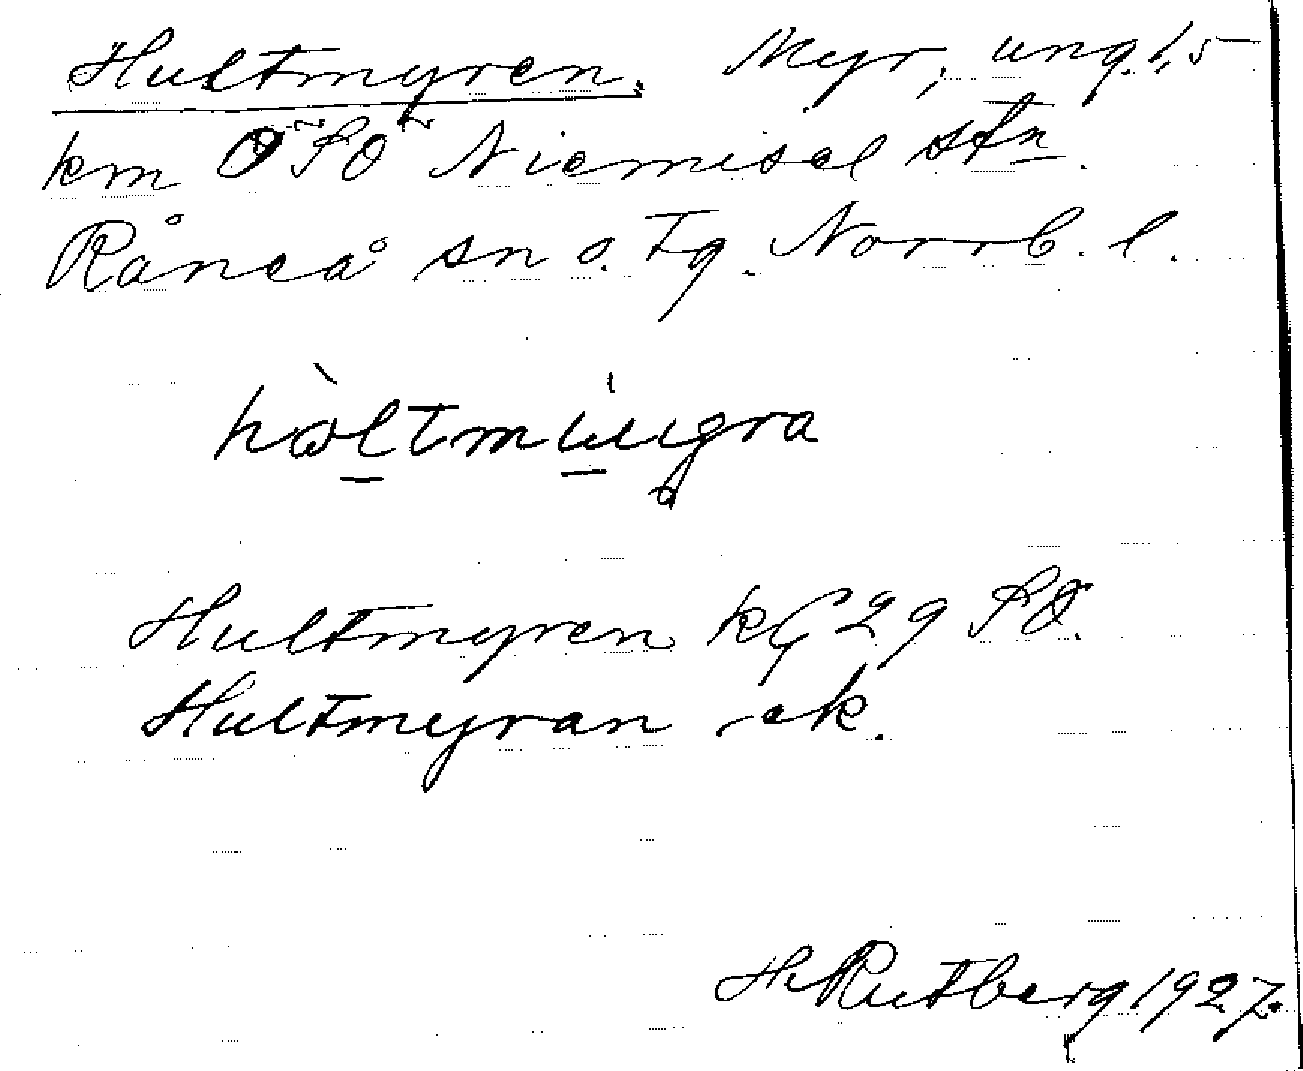 Hultmyren. Myr, ung. 1,5
km ÖSÖ Niemisel stn.
Råneå sn o. tg. Norrb. l.
Hultmyren kG 29 SO.
Hultmyran ek.
H. Rutberg 1927.